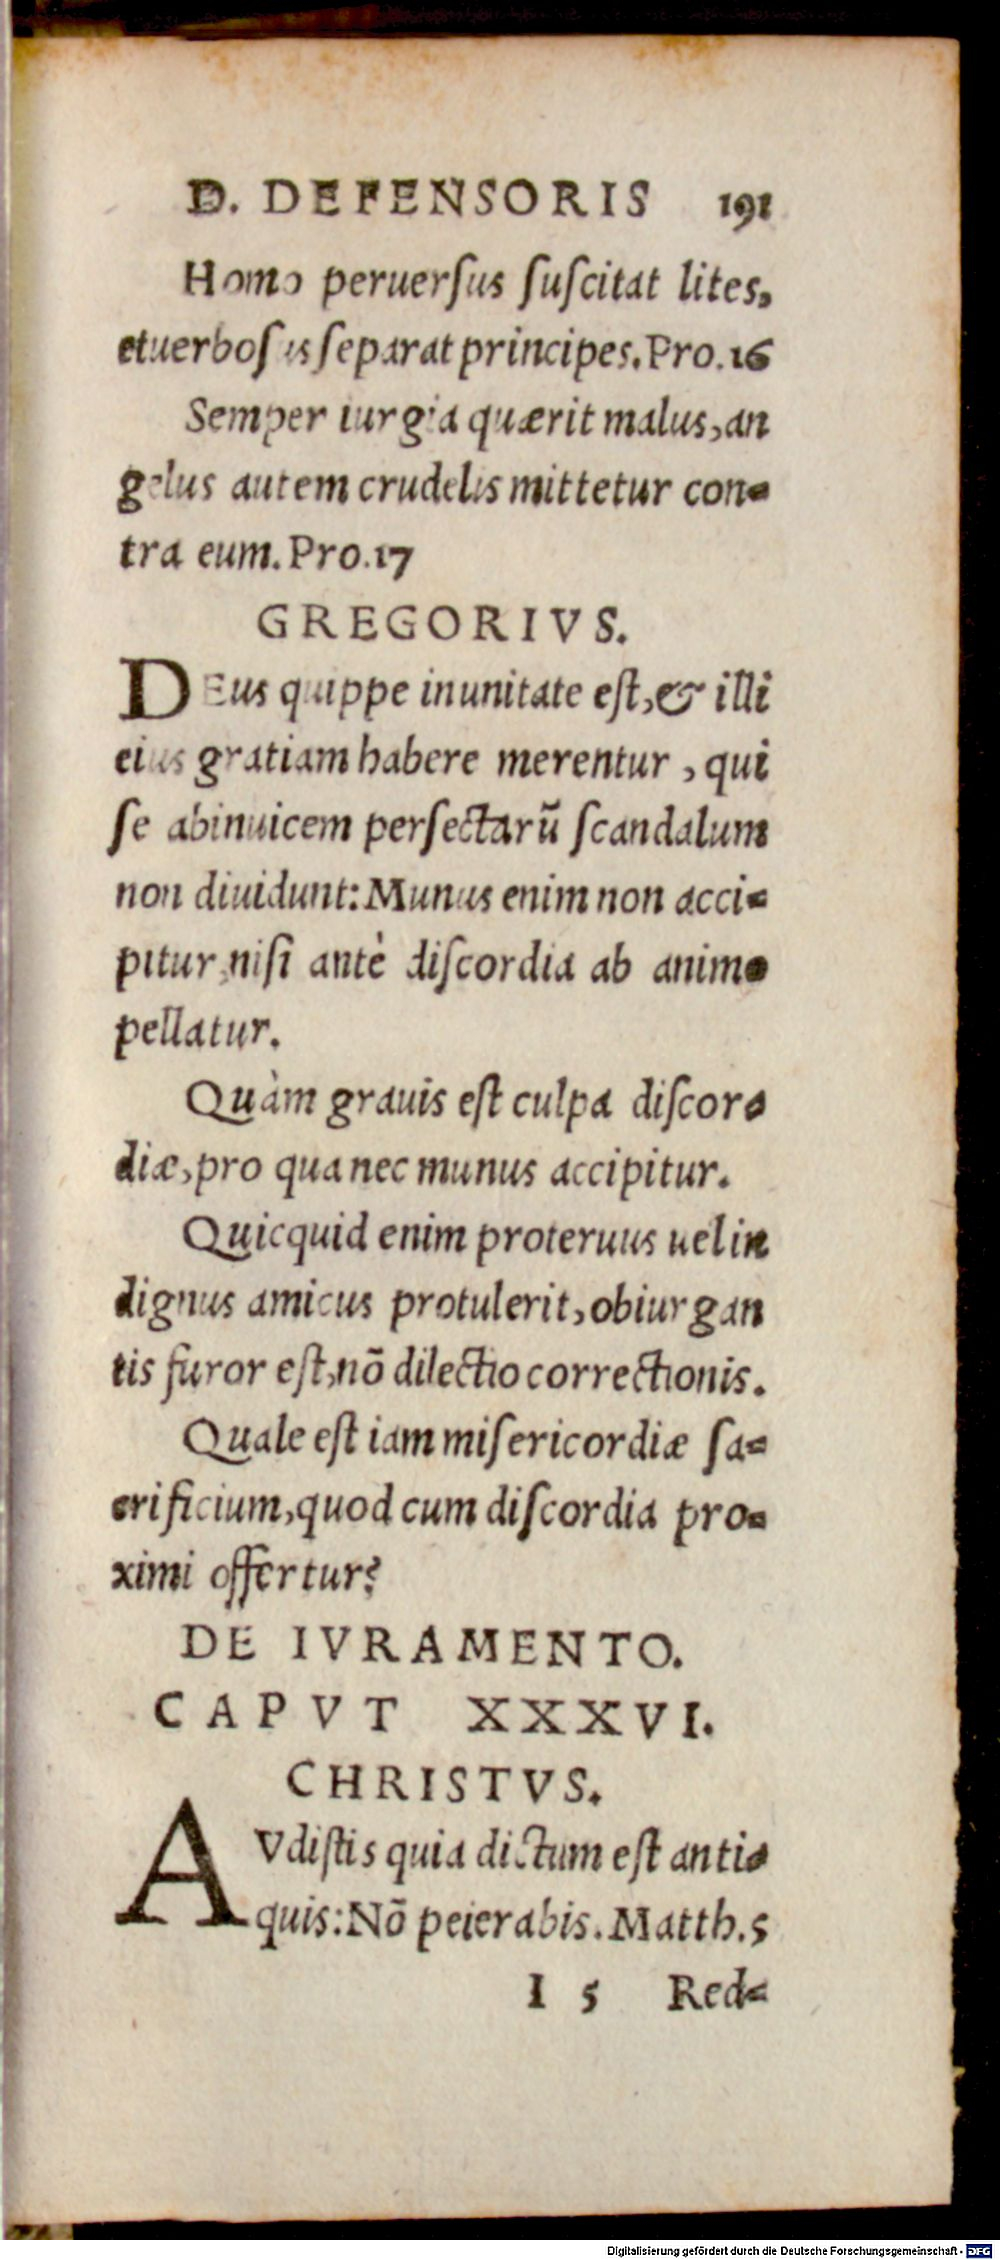 D. DEFENSORIS 191
Homo peruerſus ſuſcitat lites,
etuerboſus ſeparat principes. Pro.16
Semper iurgia quærit malus, an
gelus autem crudelis mittetur con-
tra eum. Pro.17
GREGORIVS.
DEus quippe in unitate eſt, & illi
eius gratiam habere merentur, qui
ſe abinuicem perſectarũ ſcandalum
non diuidunt: Munus enim non acci-
pitur, niſi antè diſcordia ab animo
pellatur.
Quàm grauis eſt culpa diſcor-
diæ, pro qua nec munus accipitur.
Quicquid enim proteruus uel in
dignus amicus protulerit, obiurgan
tis furor eſt, nõ dilectio correctionis.
Quale eſt iam miſericordiæ ſa-
crificium, quod cum diſcordia pro-
ximi offertur?
DE IVRAMENTO.
CAPVT XXXVI.
CHRISTVS.
AVdiſtis quia dictum eſt anti-
quis: Nõ peierabis. Matth.5
I 5 Red-
Digitalisierung gefördert durch die Deutsche Forschungsgemeinschaft - DFG